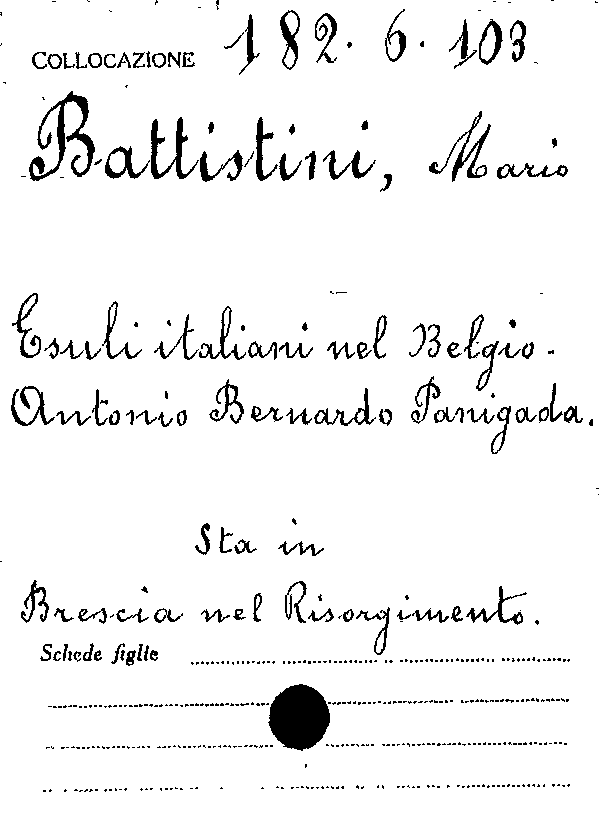 COLLOCAZIONE 182. 6. 103
Battistini, Mario
Esuli italiani nel Belgio.
Antonio Bernardo Panigada.
Sta in
Brescia nel Risorgimento.
Schede figlie